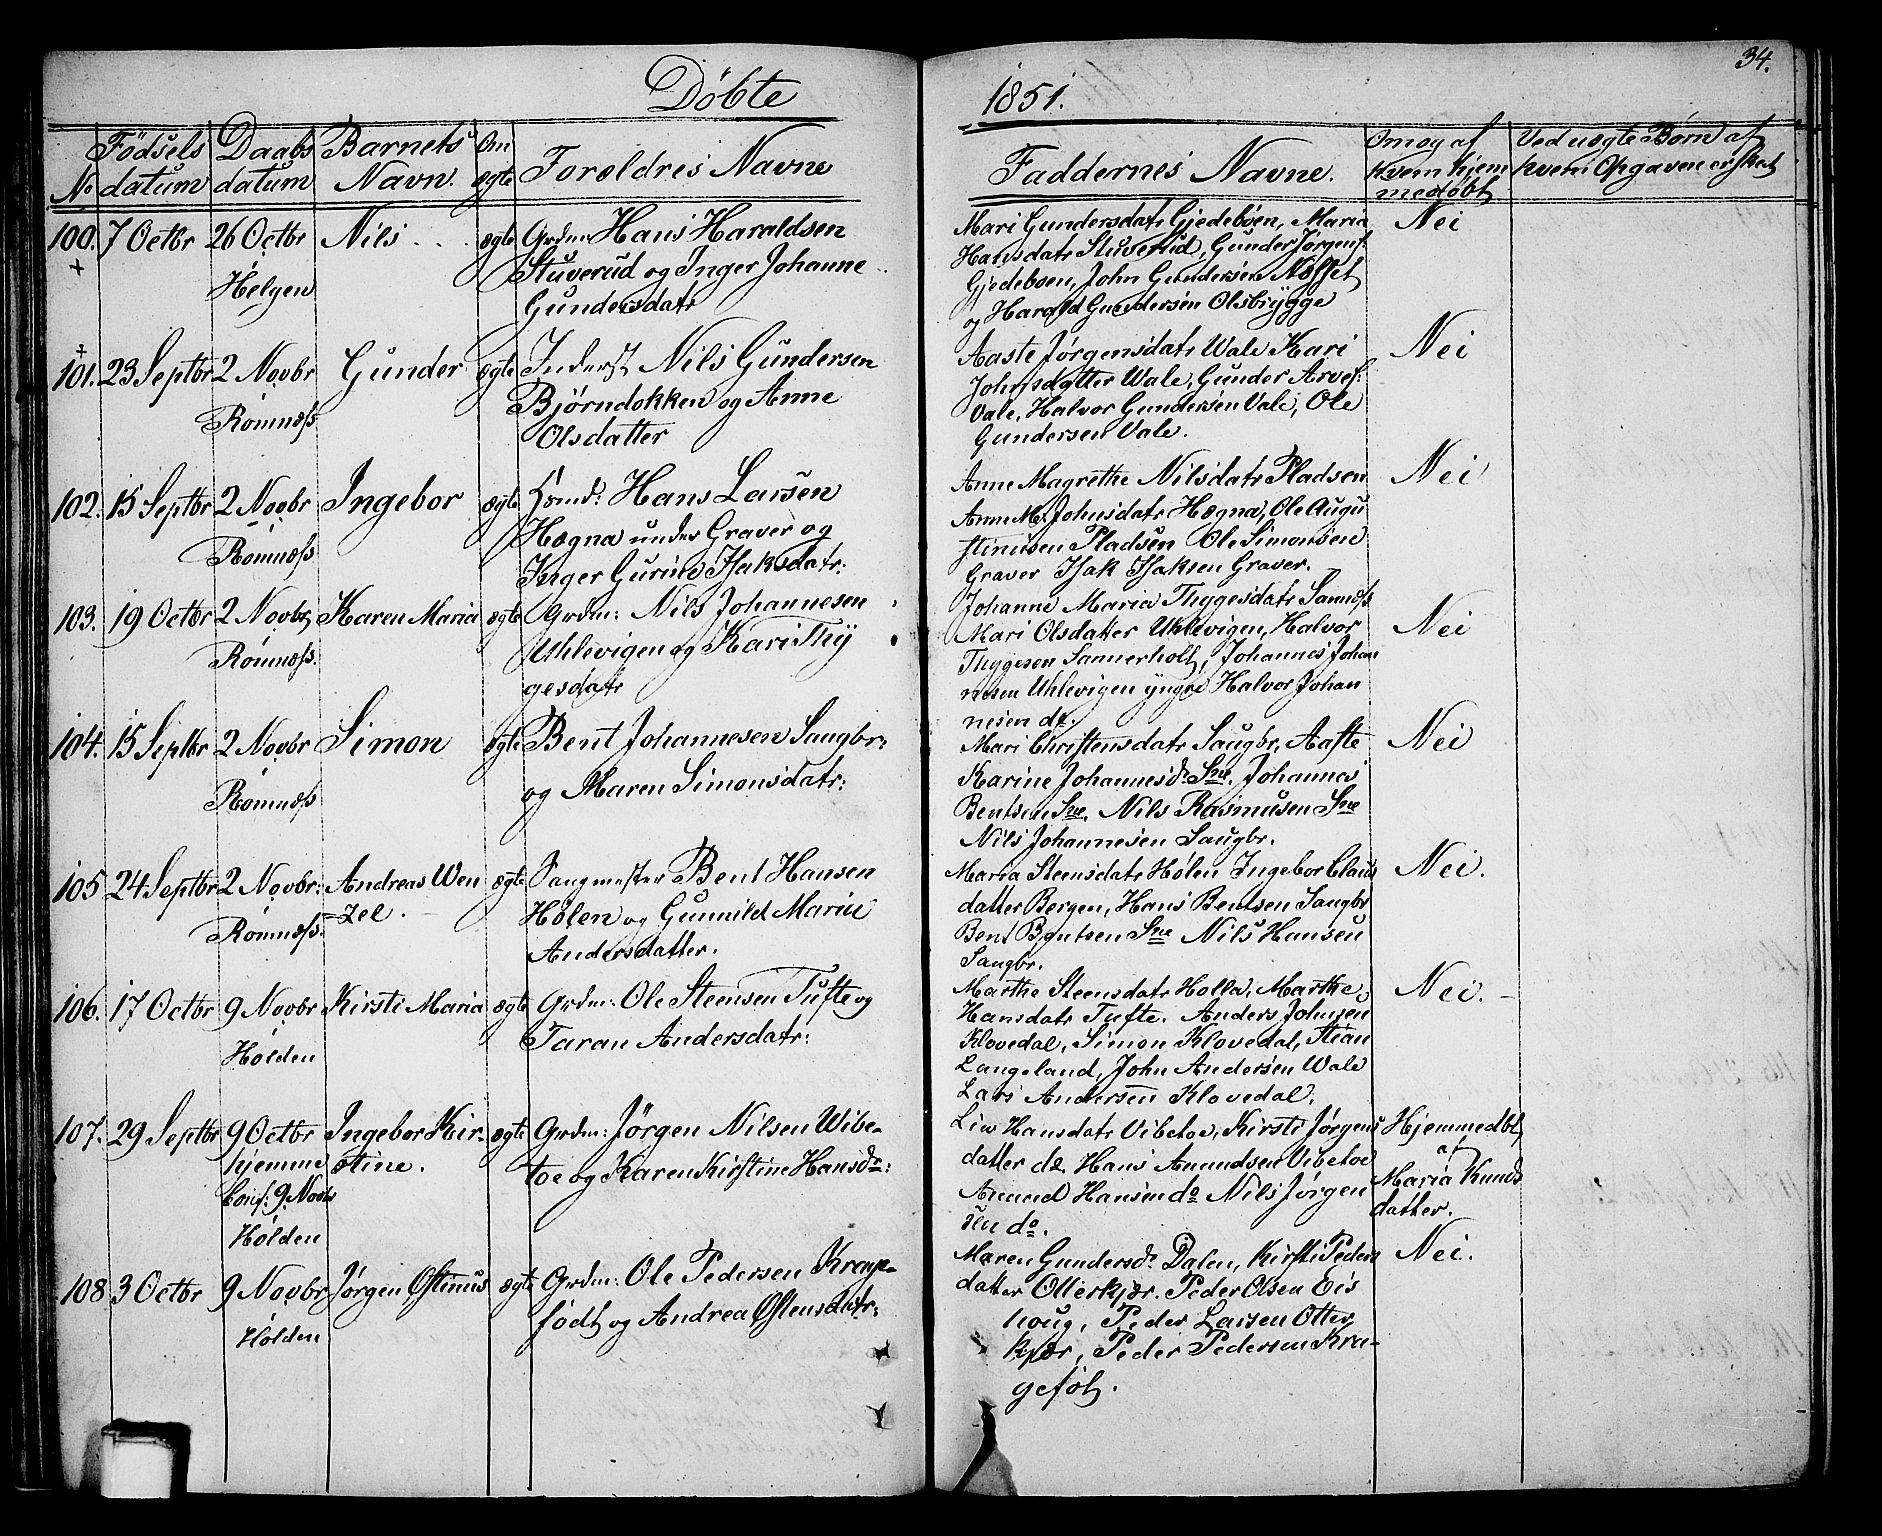 34.
Döbte 1851.
No Födsels datum Daabs datum Barnets Navn. Om ægte Forældres Navne Faddernes Navne. Om og af hvem hjem medøbt Ved uægte Børn af hvem Opgaven er skeet
100. 7 Octbr 26 Octbr Helgen Nils ægte
Grdm: Hans Haraldsen
Stuverud og Inger Johanne
Gundersdatr
Mari Gundersdatr Gjedeböen, Maria
Hansdatr Stuverud, Gunder Jørgens:
Gjedeboen, John Gundersen Næsset
og Harald Gundersen Olsbrygge
Nei
101. 23 Septbr 2 Novbr Romnæss Gunder ægte
Inderst Nils Gundersen
Bjørndokken og Anne
Olsdatter
Aaste Jørgensdatr Wale Kari
Johnsdatter Wale, Gunder Arves:
Vale, Halvor Gundersen Vale, Ole
Gundersen Vale.
Nei
102. 15 Septbr 2 Novbr Romnæss Ingebor ægte
Hsmd: Hans Larsen
Hægna under Graver og
Inger Gurine Isaksdatr:
Anne Magrethe Nilsdatr Pladsen
Anne M. Johnsdatr Hægna, Ole Augu
stinusen Pladsen Ole Simonsen
Graver Isak Isaksen Graver.
Nei
103. 19 Octbr 2 Novbr Romnæss. Karen Maria ægte
Grdm: Nils Johannesen
Uhlevigen og Kari Thy
gesdatr
Johanne Maria Thygesdatr Sannæss
Mari Olsdatter Uhlevigen, Halvor
Thygesen Sannerholt, Johannes Johan
nesen Uhlevigen yngre Halvor Johan
nesen do.
Nei
104. 15 Septbr 2 Novbr Romnæss Simon ægte
Bent Johannesen Saugbr:
og Maren Simonsdatr:
Mari Christensdatr Saugbr, Aaste
Karine Johannesd. Sne. Johannes
Bentsen Sne. Nils Rasmusen Sne
Nils Johannesen Saugbr.
Nei
105 24 Septbr 2 Novbr: Romnæss. Andreas Wen
=zel. ægte
Saugmester Bent Hansen
Holen og Gunnild Marie
Andersdatter.
Maria Steensdatr Holen Ingebor Claus
datter Bergen, Hans Bentsen Saugbr
Bent Bentsen Sne Nils Hansen
Saugbr.
Nei.
106. 17 Octbr 9 Novbr Holden Kirsti Maria ægte
Grdm: Ole Steensen Tufte og
Taran Andersdatr:
Marthe Steensdatr Holla, Marthe
Hansdatr Tufte. Anders Johnsen
Klovedal, Simon Klovedal, Stian
Langeland, John Andersen Wale
Lars Andersen Klovedal.
Nei.
107. 29 Septbr 9 Octbr
hjemme
Conf: 9 Novbr
Holden
Ingebor Kir-
stine. ægte
Grdm: Jörgen Nilsen Wibe-
toe og Karen Kirstine Hansdr:
Liv Hansdatr Vibetoe, Kirsti Jørgens
datter do. Hans Amundsen Vibetoe
Amund Hansen do Nils Jörgen
sen do.
Hjemmedbt
af
Maria Knuds
datter.
108 3 Octbr 9 Novbr Holden Jørgen Østinus ægte
Grdm: Ole Pedersen Krage-
födt og Andrea Østensdatr:
Maren Gundersdr. Dalen, Kirsti Peders
datter Otterkjær. Peder Olsen Eis
houg, Peder Larsen Otter
kjær, Peder Pedersen Kra-
geføt.
Nei.